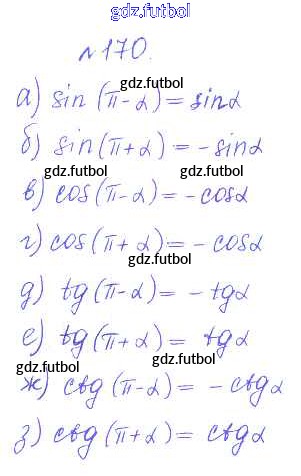 gdz.futbol
№170.
gdz.futbol
а) sin (π-α)= sinα
б) sin(π+α) = -sinα
gdz.futbol
gdz.futbol
в) cos(π-α)= -cosα
г) cos(π+α)= -cosα
gdz.futbol
д) tg(π-α)= -tgα
е) tg(π+α)= tgα
gdz.futbol
gdz.futbol
ж) ctg(π-α)= -ctgα
з) ctg(π+α)= ctgα
gdz.futbol